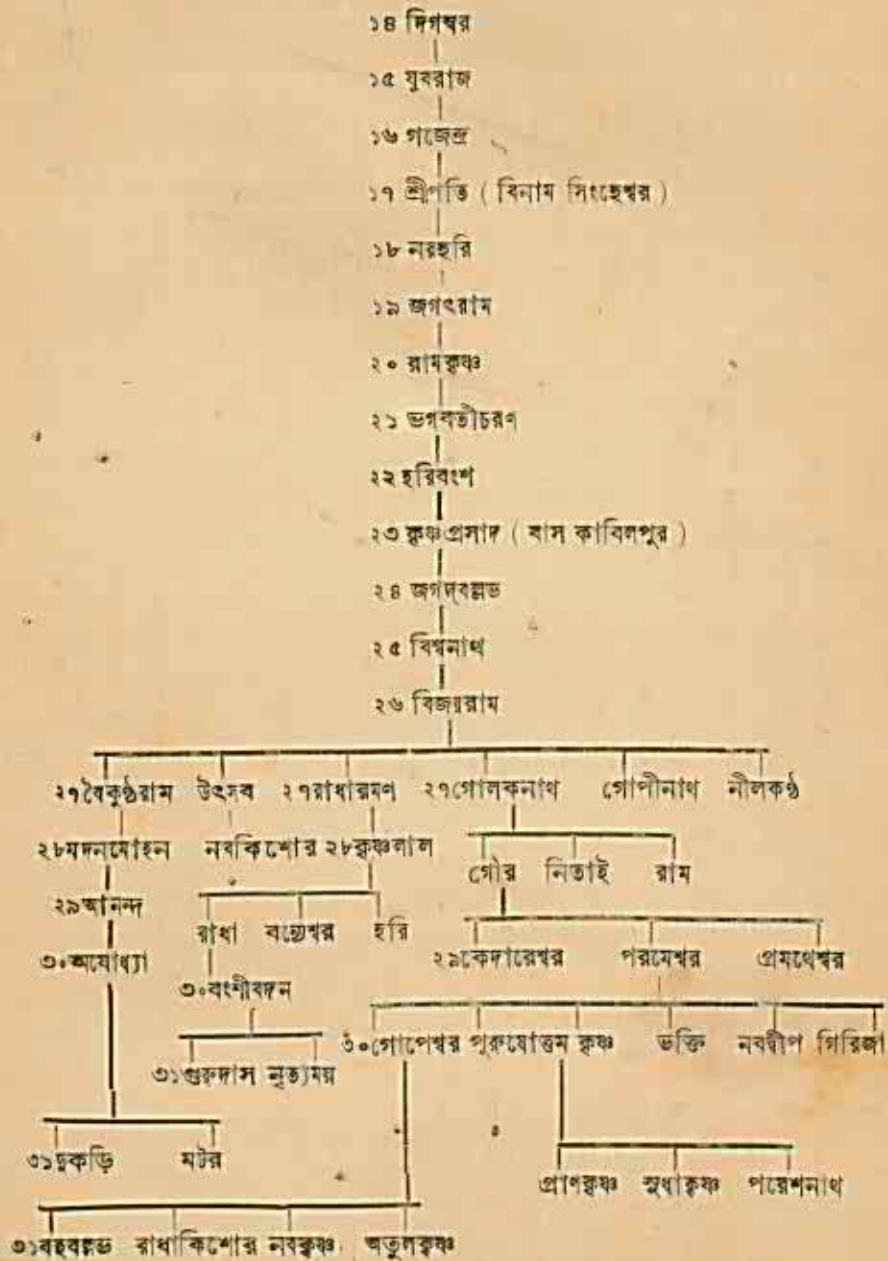 ১৪ দিগম্বর
১৫ যুবরাজ
১৬ গজেন্দ্র
১৭ শ্রীপতি ( বিনাম সিংহেশ্বর )
১৮ নরহরি
১৯ জগৎরাম
২০ রামকৃষ্ণ
২১ ভগবতীচরণ
২২ হরিবংশ
২৩ কৃষ্ণপ্রসাদ ( বাস কাবিলপুর )
২৪ জগদ্‌বল্লভ
২৫ বিশ্বনাথ
২৬ বিজয়রাম
২৭বৈকুণ্ঠরাম উৎসব ২৭রাধারমণ ২৭গোলকনাথ গোপীনাথ নীলকণ্ঠ
২৮মদনমোহন নবকিশোর ২৮কৃষ্ণলাল
গৌর নিতাই রাম
২৯আনন্দ
রাধা বক্রেশ্বর হরি
৩০অযোধ্যা
২৯কেদারেশ্বর পরমেশ্বর প্রমথেশ্বর
৩০বংশীবদন
৩০গোপেশ্বর পুরুষোত্তম কৃষ্ণ ভক্তি নবদ্বীপ গিরিজা
৩১গুরুদাস নৃত্যময়
৩১দুকড়ি মটর
প্রাণকৃষ্ণ সুধাকৃষ্ণ পরেশনাথ
৩১বহুবল্লভ রাধাকিশোর নবকৃষ্ণ অতুলকৃষ্ণ